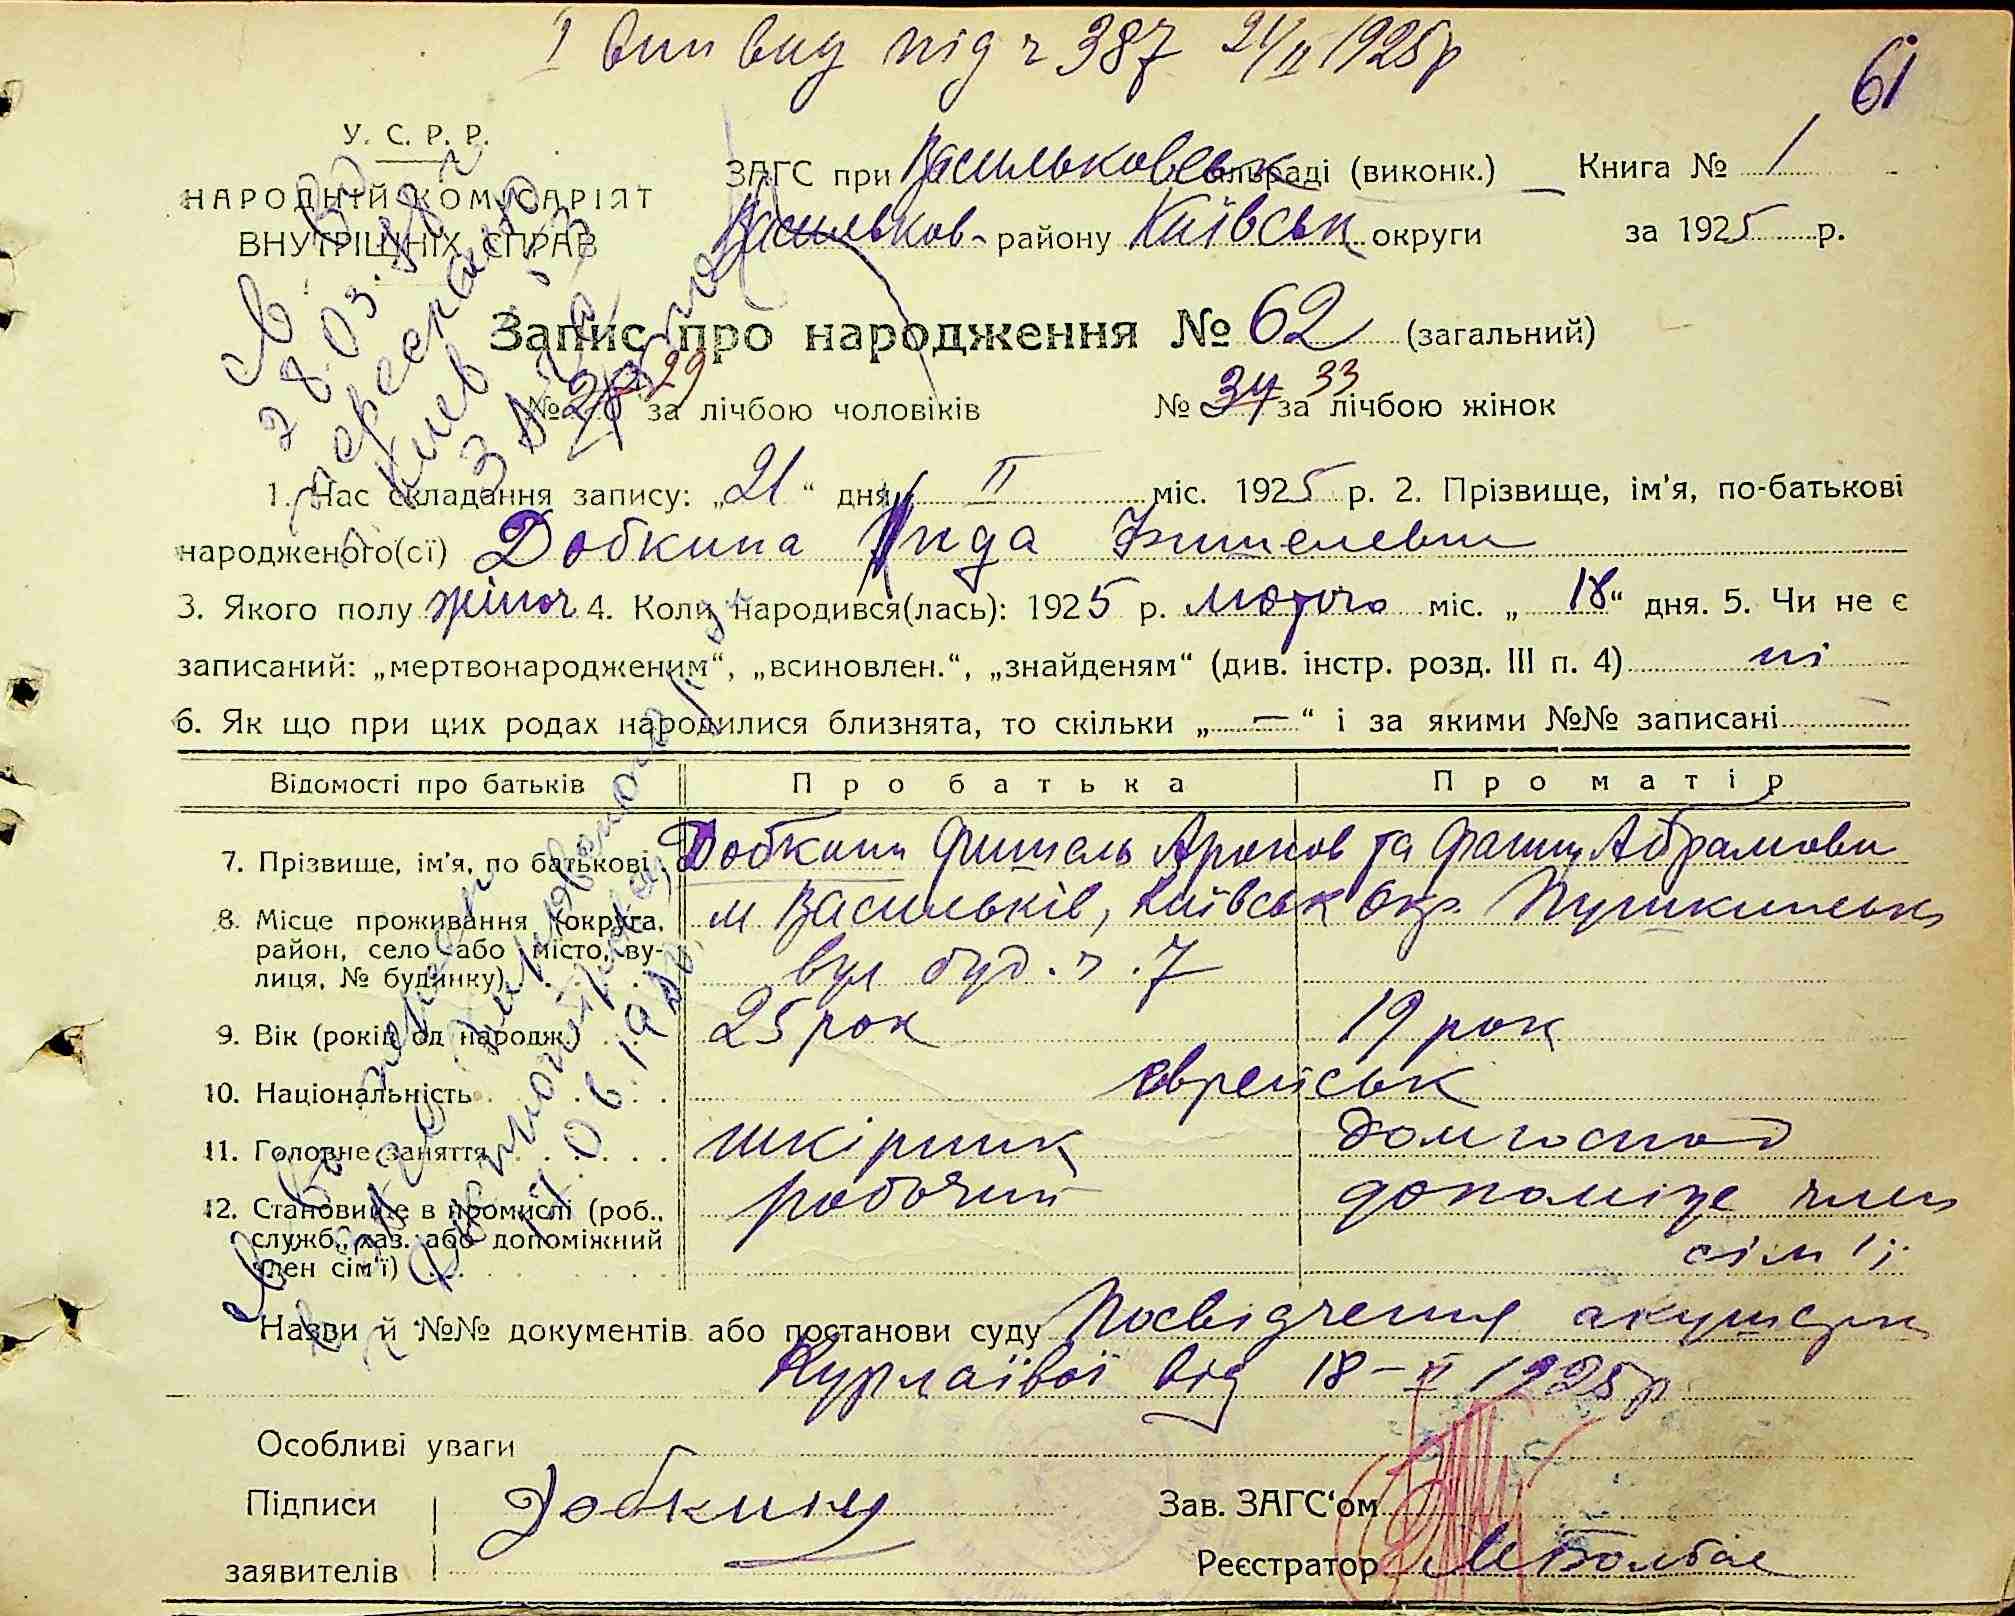 I вип вид під ч 387 21/II 1925р
61
У. С. Р. Р.
НАРОДНІЙ КОМІСАРІЯТ
ВНУТРІШНІХ СПРАВ
ЗАГС при Васильковськ сільраді (виконк.) Книга № 1
Васильков району Київськ округи за 1925 р.
Запис про народження № 62 (загальний)
№ 28 29 за лічбою чоловіків № 34 33 за лічбою жінок
1. Час складання запису: „21“ дня II міс. 1925 р. 2. Прізвище, ім'я, по-батькові
народженого(сї) Добкина Фишелевна
3. Якого полу жіноч 4. Коли народився(лась): 1925 р. лютого міс. „18“ дня. 5. Чи не є
записаний: „мертвонародженим“, „всиновлен.“, „знайденям“ (див. інстр. розд. III п. 4) ні
6. Як що при цих родах народилися близнята, то скільки „—“ і за якими №№ записані —
Відомості про батьків Про батька Про матір
7. Прізвище, ім'я, по батькові Добкини Фишель Аронов та Фаниц Абрамовн
8. Місце проживання (округа, м Васильків, Київськ Окр. Пушкинськ
район, село або місто, ву-
лиця, № будинку) вул буд. ч. 7
9. Вік (років од народж.) 25 рок 19 рок
10. Національність єврейськ
11. Головне заняття шкірник домгоспод
12. Становище в промислі (роб., робочий допоміже член
служб., хаз. або допоміжний
член сім'ї) сім'ї
Назви й №№ документів або постанови суду Посвідчення акушерки
від 18-II 1925р
Особливі уваги
Підписи Добкину Зав. ЗАГС'ом
заявителів Реєстратор